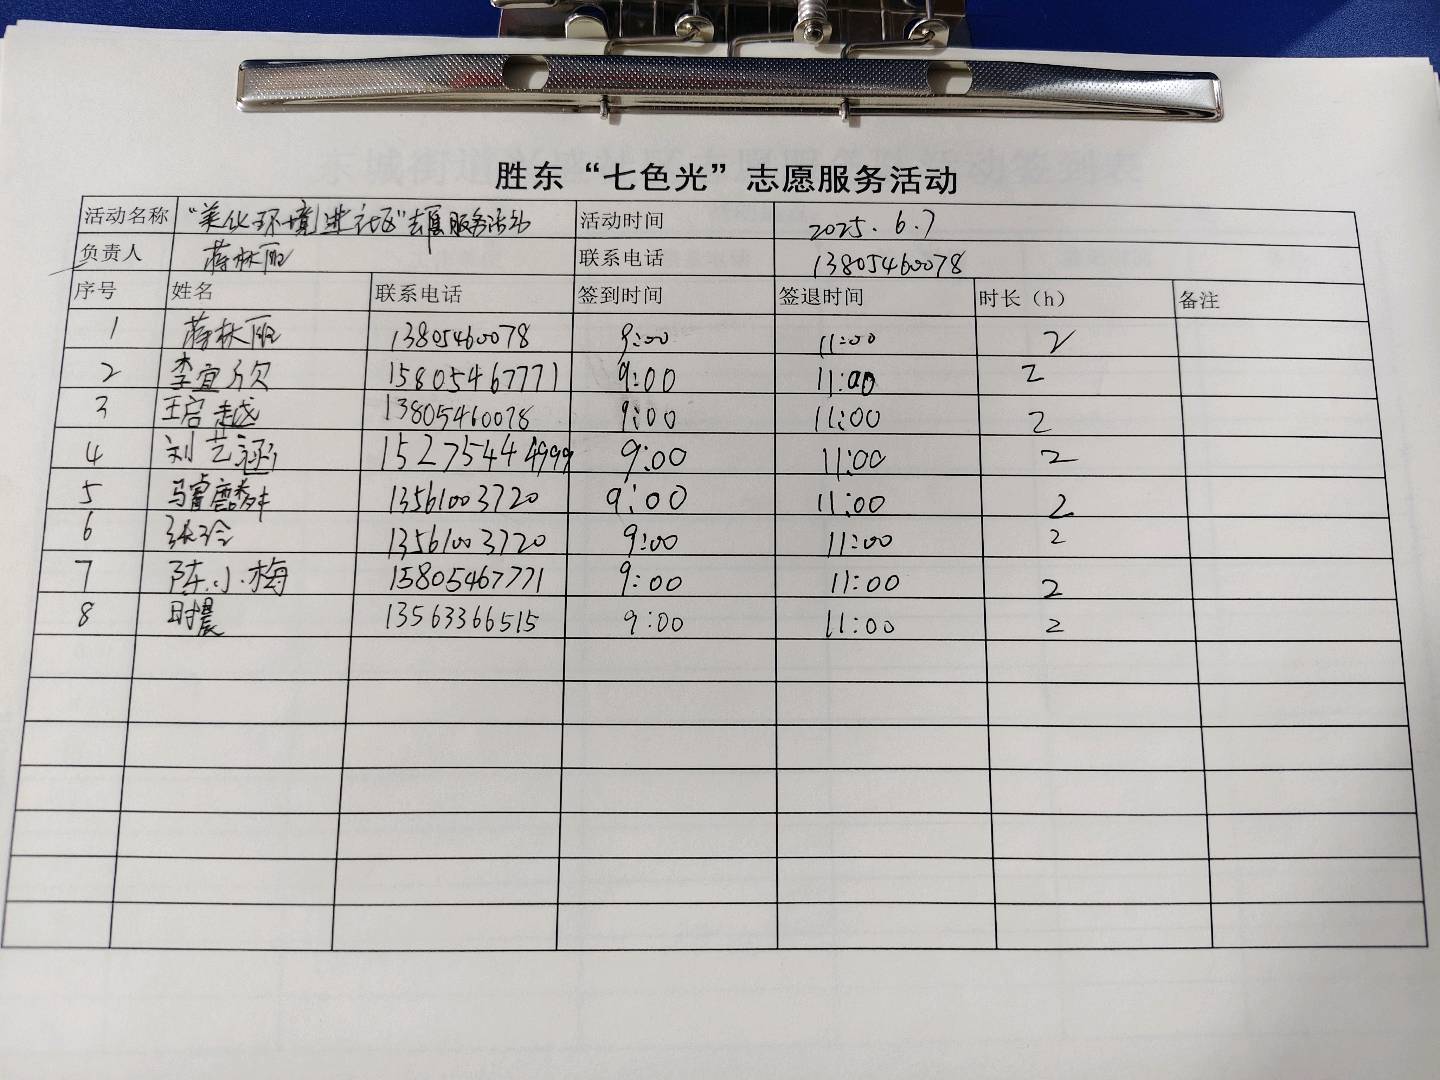 胜东“七色光”志愿服务活动
活动名称 “美化环境进社区”志愿服务活动 活动时间 2025.6.7
负责人 蒋林丽 联系电话 13805460078
序号 姓名 联系电话 签到时间 签退时间 时长（h） 备注
1 蒋林丽 13805460078 9:00 11:00 2
2 李宜欣 15805467771 9:00 11:00 2
3 王启越 13805460078 9:00 11:00 2
4 刘艺涵 15275444999 9:00 11:00 2
5 马睿麟 13561003720 9:00 11:00 2
6 张玲 13561003720 9:00 11:00 2
7 陈小梅 15805467771 9:00 11:00 2
8 时晨 13563366515 9:00 11:00 2